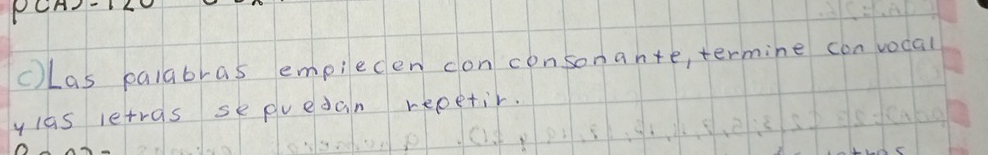 P(A)=120
c) Las palabras empiecen con consonante, termine con vocal
y las letras se puedan repetir.